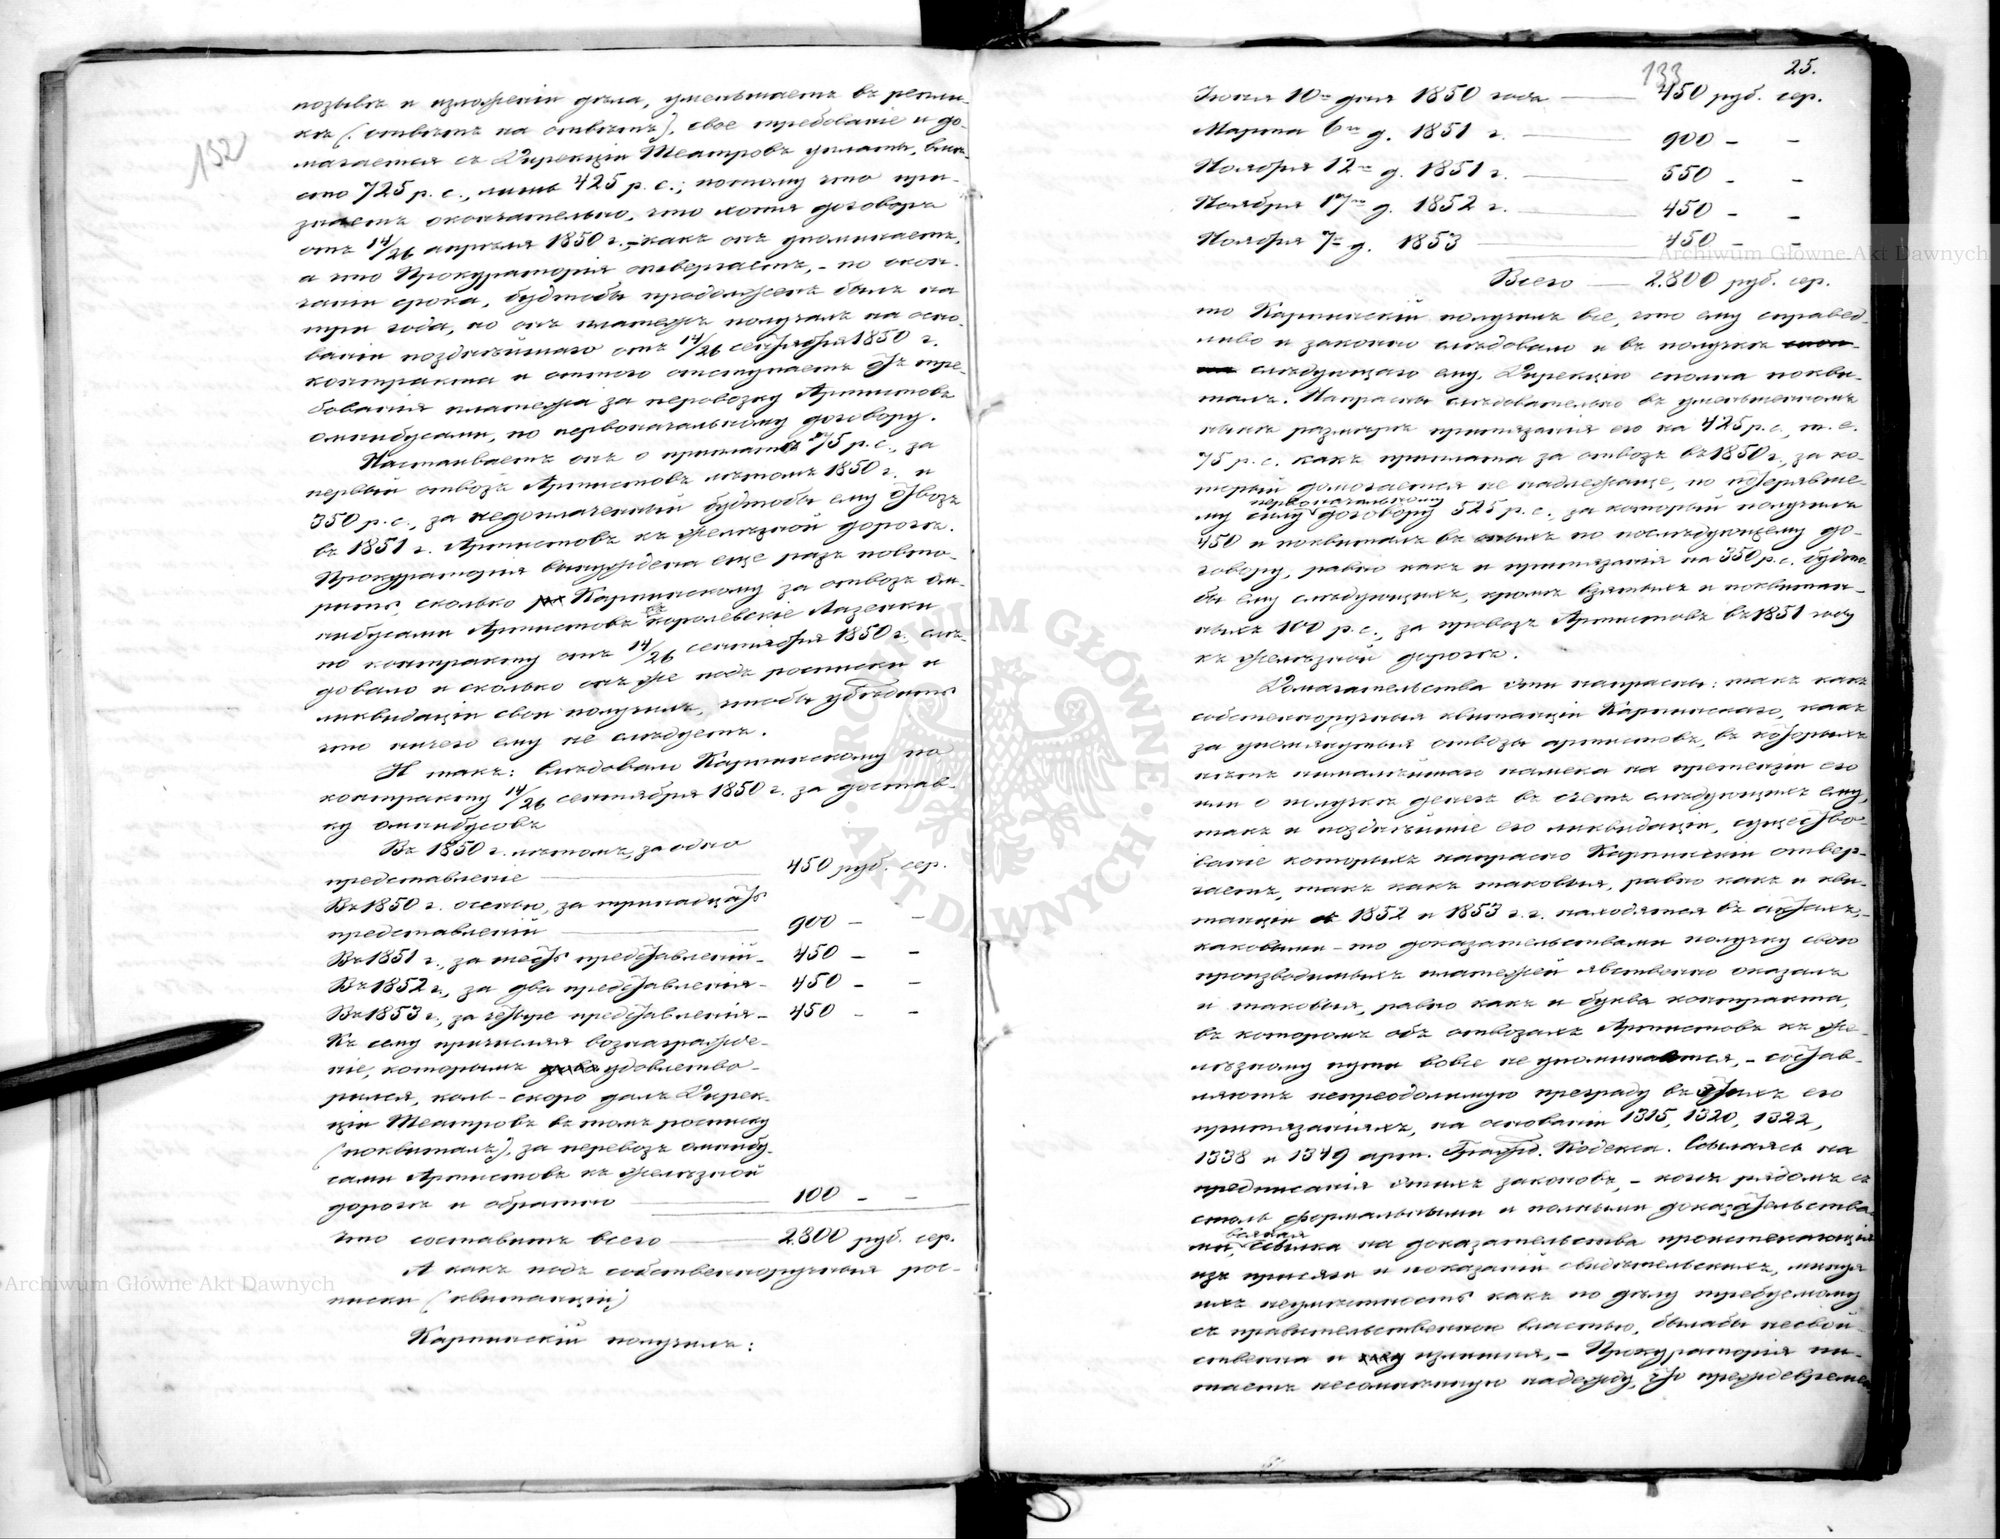 132
позывѣ и изложеніи дѣла, уменьшаетъ въ репли-
кѣ (отвѣтѣ на отвѣтъ), свое требованіе и до-
магается съ Дирекціи Театровъ уплаты, вмѣ-
сто 725 р. с., лишь 425 р. с.; потому что при-
знаетъ окончательно, что хотя договоръ
отъ 14/26 апрѣля 1850 г., – какъ онъ упоминаетъ,
а что Прокураторія отвергаетъ, – по окон-
чаніи срока, будтобы продолженъ былъ на
три года, но онъ платежъ получалъ на осно-
ваніи позднѣйшаго отъ 14/26 сентября 1850 г.
контракта и оттого отступаетъ отъ тре-
бованія платежа за перевозку Артистовъ
омнибусами, по первоначальному договору.
Настаиваетъ онъ о приплатѣ 75 р. с., за
первый отвозъ Артистовъ лѣтомъ 1850 г. и
350 р. с., за недоплаченный будтобы ему отвозъ
въ 1851 г. Артистовъ къ желѣзной дорогѣ.
Прокураторія вынуждена еще разъ повто-
рить, сколько Карпинскому за отвозъ ом-
нибусами Артистовъ въ королевскіе Лазенки
по контракту отъ 14/26 сентября 1850 г. слѣ-
довало и сколько онъ же подъ росписки и
ликвидаціи свои получилъ, чтобы убѣдить
что ничего ему не слѣдуетъ.
И такъ: Слѣдовало Карпинскому по
контракту 14/26 сентября 1850 г. за достав-
ку омнибусовъ
Въ 1850 г. лѣтомъ, за одно
представленіе — 450 руб. сер.
Въ 1850 г. осенью, за тринадцать
представленій — 900 – –
Въ 1851 г., за шесть представленій – 450 – –
Въ 1852 г., за два представленія – 450 – –
Въ 1853 г., за четыре представленія – 450 – –
Къ сему причисляя вознагражде-
ніе, которымъ удовлетво-
рился, коль-скоро далъ Дирек-
ціи Театровъ въ томъ росписку
(поквиталъ), за перевозъ омнибу-
сами Артистовъ къ желѣзной
дорогѣ и обратно — 100 – –
что составитъ всего — 2.800 руб. сер.
А какъ подъ собственноручныя рос-
писки (квитанціи)
Карпинскій получилъ:
133
25.
Іюня 10го дня 1850 года — 450 руб. сер.
Марта 6го д. 1851 г. — 900 – –
Ноября 12го д. 1851 г. — 550 – –
Ноября 17го д. 1852 г. — 450 – –
Ноября 7го д. 1853 — 450 – –
Всего — 2.800 руб. сер.
то Карпинскій получилъ все, что ему справед-
ливо и законно слѣдовало и въ получкѣ
слѣдующаго ему, Дирекцію сполна покви-
талъ. Напрасны слѣдовательно въ уменьшенномъ
размѣрѣ притязанія его на 425 р. с., т. е.
75 р. с. какъ приплата за отвозъ въ 1850 г., за ко-
торый домогается не надлежаще, по потерявше-
му силу первоначальному договору 525 р. с., за который получилъ
450 и поквиталъ въ по послѣдующему до-
говору, равно какъ и притязанія на 350 р. с. будто
бы ему слѣдующихъ, кромѣ взятыхъ и поквитан-
ныхъ 100 р. с., за провозъ Артистовъ въ 1851 году
къ желѣзной дорогѣ.
Домагательства эти напрасны: такъ какъ
собственноручныя квитанціи Карпинскаго, какъ
за упомянутыя отвозы артистовъ, въ которыхъ
нѣтъ ни малѣйшаго намека на претензіи его
или о получкѣ денегъ въ счетъ слѣдующихъ ему,
такъ и позднѣйшіе его ликвидаціи, существо-
ваніе которыхъ напрасно Карпинскій отвер-
гаетъ, такъ какъ таковыя, равно какъ и кви-
танціи 1852 и 1853 г.г. находятся въ актахъ, –
каковыми-то доказательствами получку свою
производимыхъ платежей явственно оказалъ
и таковыя, равно какъ и буква контракта,
въ которомъ объ отвозахъ Артистовъ къ же-
лѣзному пути вовсе не упоминается, – состав-
ляютъ непреодолимую преграду въ этихъ его
притязаніяхъ, на основаніи 1315, 1320, 1322,
1338 и 1349 арт. Гражд. Кодекса. Ссылаясь на
предписанія этихъ законовъ, – коль рядомъ съ
столь формальными и полными доказательства-
ми, всякая ссылка на доказательства проистекающія
изъ присяги и показаній свидѣтельскихъ,
какъ по дѣлу требуемому
съ правительственною властью, былабы несвой-
ственна и излишня, – Прокураторія пи-
таетъ несомнѣнную надежду, что
Archiwum Główne Akt Dawnych
Archiwum Główne Akt Dawnych
ARCHIWUM GŁÓWNE · AKT DAWNYCH ·